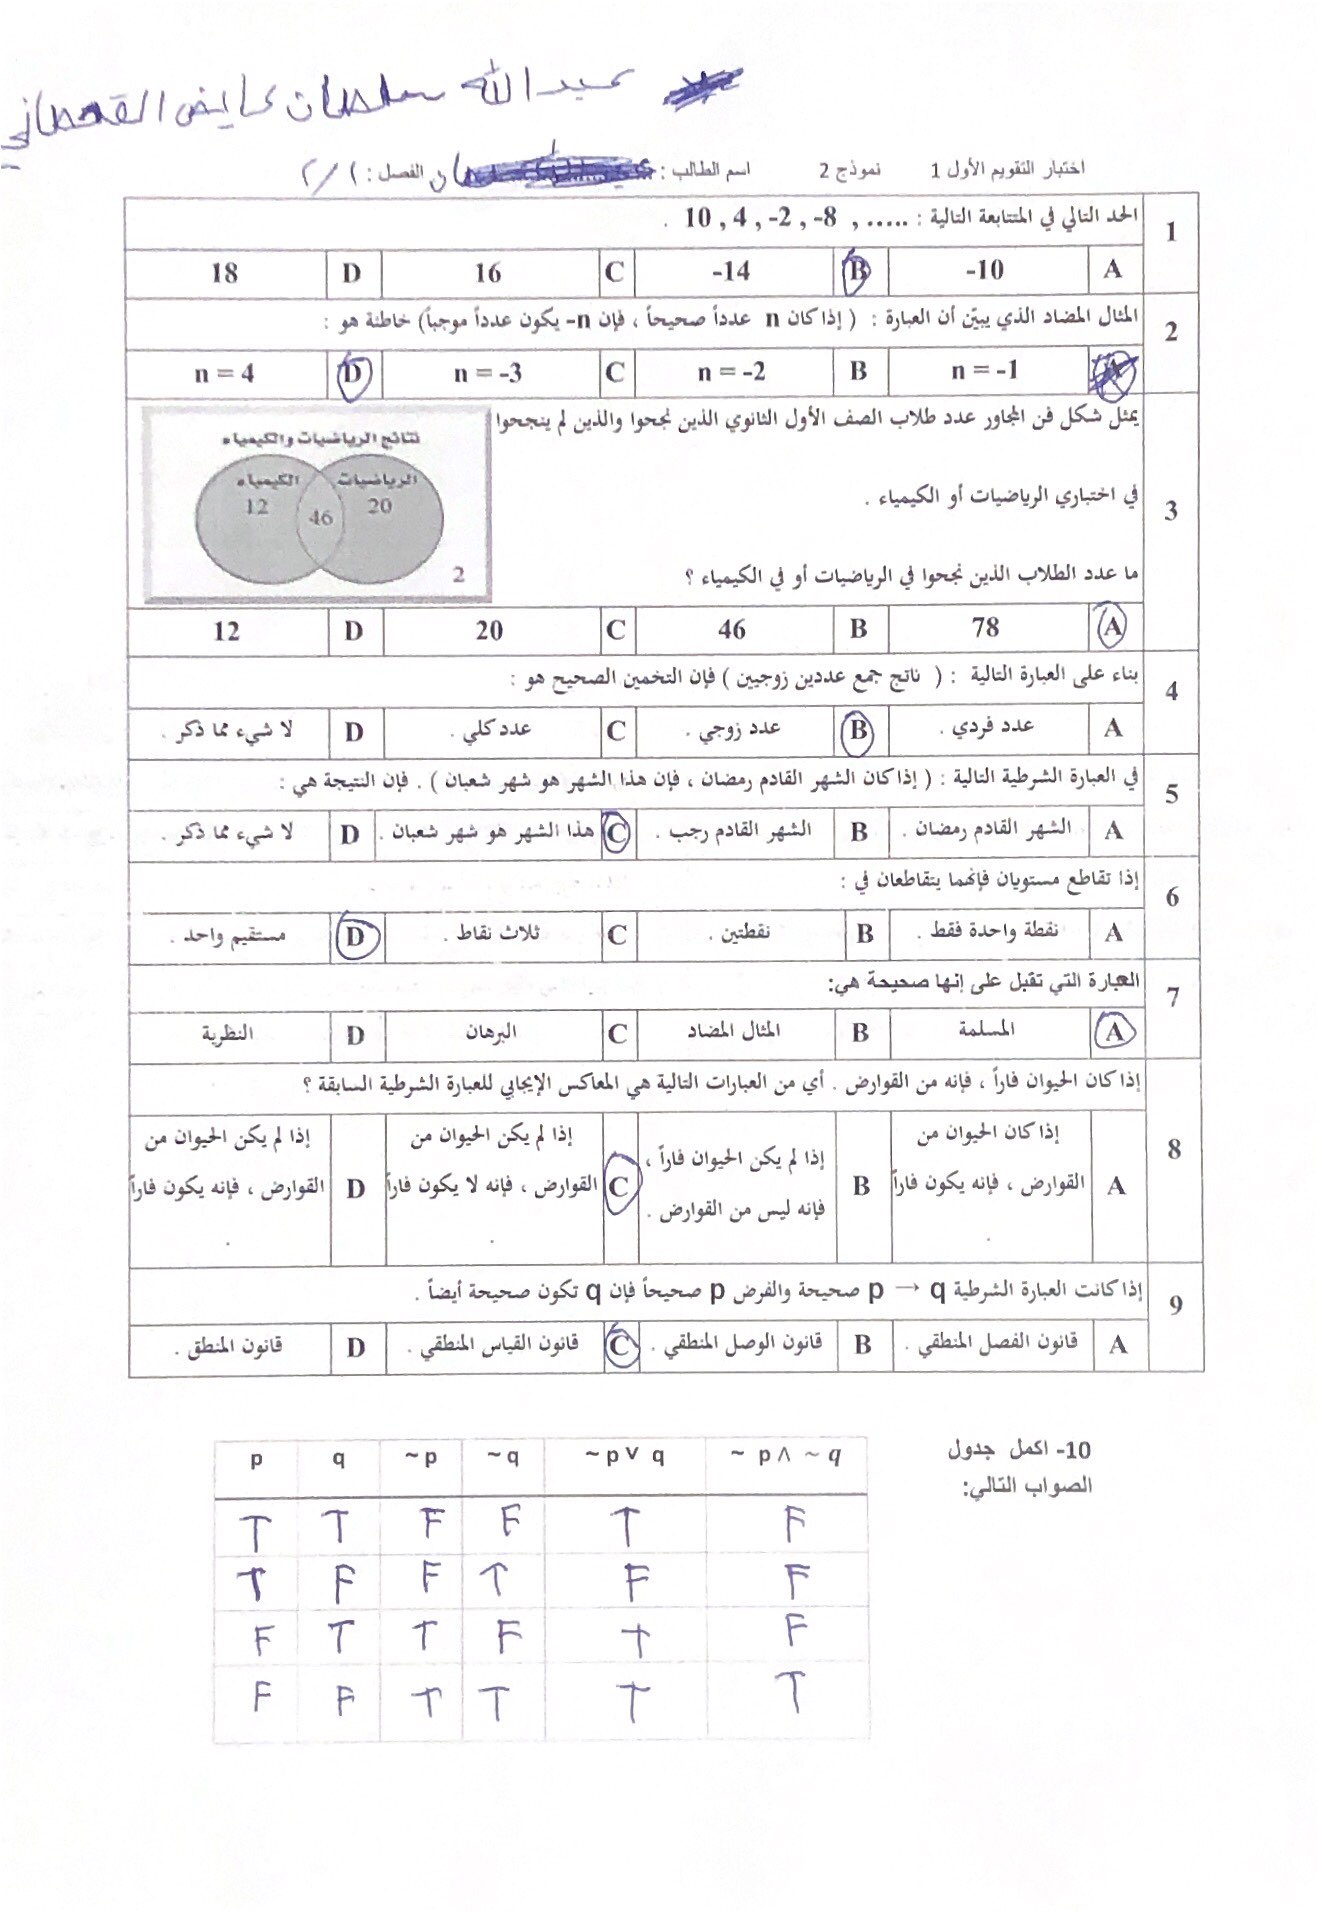 عبدالله سلطان عايض القحطاني
اختبار التقويم الأول 1 نموذج 2 اسم الطالب : الفصل : ٢/١
1 الحد التالي في المتتابعة التالية : 10 , 4 , -2 , -8 , ..... .
A -10 B -14 C 16 D 18
2 المثال المضاد الذي يبيّن أن العبارة : ( إذا كان n عدداً صحيحاً ، فإن n- يكون عدداً موجباً) خاطئة هو :
A n = -1 B n = -2 C n = -3 D n = 4
3 يمثل شكل فن المجاور عدد طلاب الصف الأول الثانوي الذين نجحوا والذين لم ينجحوا
في اختباري الرياضيات أو الكيمياء .
ما عدد الطلاب الذين نجحوا في الرياضيات أو في الكيمياء ؟
نتائج الرياضيات والكيمياء
الرياضيات الكيمياء
20 46 12
2
A 78 B 46 C 20 D 12
4 بناء على العبارة التالية : ( ناتج جمع عددين زوجيين ) فإن التخمين الصحيح هو :
A عدد فردي . B عدد زوجي . C عدد كلي . D لا شيء مما ذكر .
5 في العبارة الشرطية التالية : ( إذا كان الشهر القادم رمضان ، فإن هذا الشهر هو شهر شعبان ) . فإن النتيجة هي :
A الشهر القادم رمضان . B الشهر القادم رجب . C هذا الشهر هو شهر شعبان . D لا شيء مما ذكر .
6 إذا تقاطع مستويان فإنهما يتقاطعان في :
A نقطة واحدة فقط . B نقطتين . C ثلاث نقاط . D مستقيم واحد .
7 العبارة التي تقبل على إنها صحيحة هي:
A المسلمة B المثال المضاد C البرهان D النظرية
8 إذا كان الحيوان فاراً ، فإنه من القوارض . أي من العبارات التالية هي المعاكس الإيجابي للعبارة الشرطية السابقة ؟
A إذا كان الحيوان من
القوارض ، فإنه يكون فاراً
.
B إذا لم يكن الحيوان فاراً ،
فإنه ليس من القوارض .
C إذا لم يكن الحيوان من
القوارض ، فإنه لا يكون فاراً
.
D إذا لم يكن الحيوان من
القوارض ، فإنه يكون فاراً
.
9 إذا كانت العبارة الشرطية p → q صحيحة والفرض p صحيحاً فإن q تكون صحيحة أيضاً .
A قانون الفصل المنطقي . B قانون الوصل المنطقي . C قانون القياس المنطقي . D قانون المنطق .
10- اكمل جدول
الصواب التالي:
p q ~p ~q ~p ∨ q ~ p ∧ ~ q
T T F F T F
T F F T F F
F T T F T F
F F T T T T